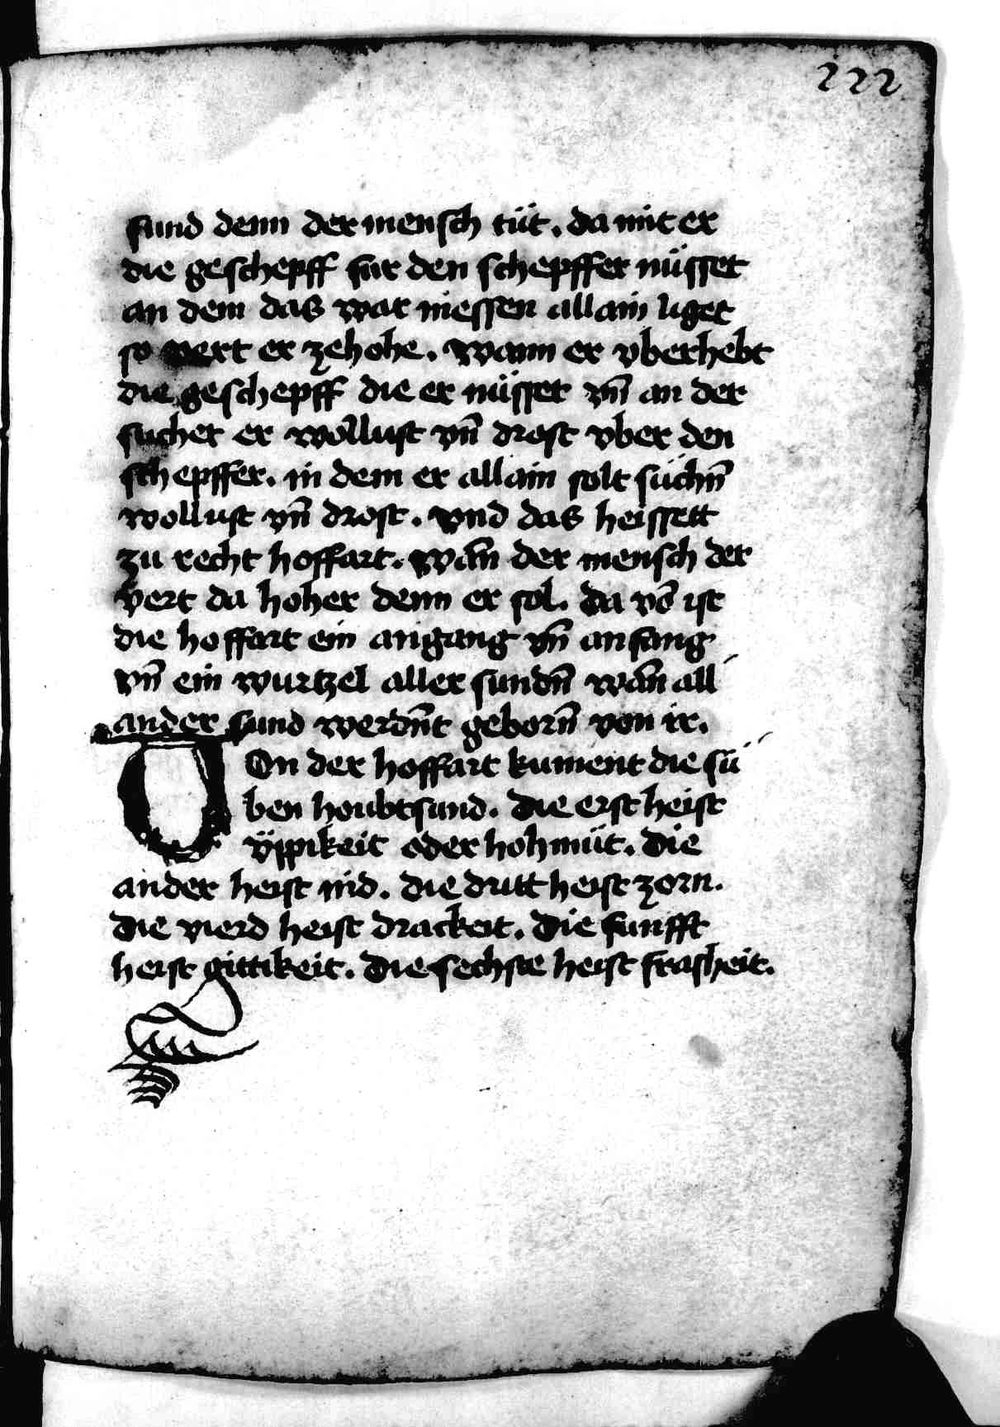 222
sund denn der mensch tüt. da mit er
die geschepff fur den schepffer nüsset
an dem das war niessen allain liget
so vert er zehohe. wann er vberhebt
die geschepff die er nüsset vn̄ an der
suchet er wollust vn̄ drost vber den
schepffer. in dem er allain solt süchn̄
wollust vn̄ drost. vnd das heissett
zu recht hoffart. wan̄ der mensch der
vert da hoher denn er sol. da vō ist
die hoffart ein angang vn̄ anfang
vn̄ ein wurtzel aller sundn̄ wan̄ all
ander sund werdn̄t geborn̄ von ir.
Von der hoffart kument die sü
ben houbtsund. die erst heist
üppikeit oder hohmüt. Die
ander heist nid. die dritt heist zorn.
die vierd heist drackeit. Die funfft
heist gittikeit. Die sechste heist frasheit.